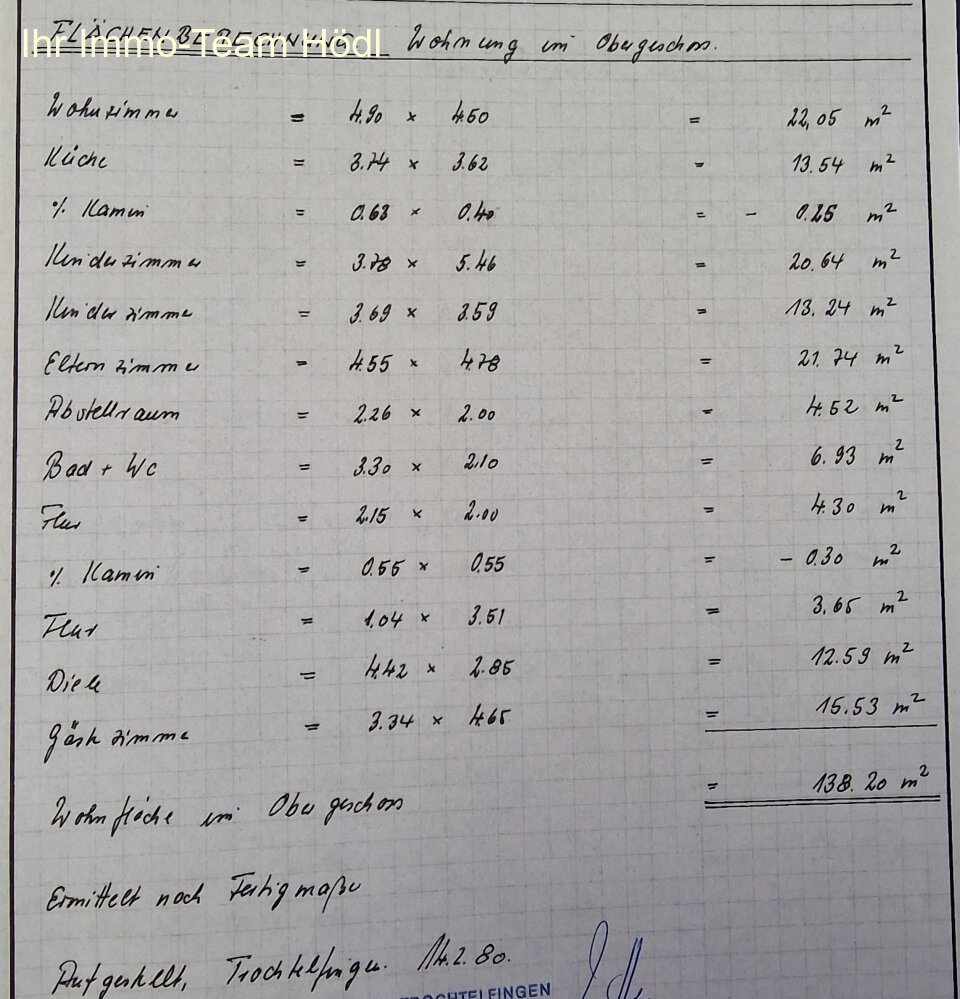 FLÄCHENBERECHNUNG Wohnung im Obergeschoss.
Ihr Immo-Team Hödl
Wohnzimmer = 4.90 × 4.50 = 22,05 m²
Küche = 3.74 × 3.62 = 13.54 m²
% Kamin = 0.63 × 0.40 = - 0.25 m²
Kinderzimmer = 3.78 × 5.46 = 20.64 m²
Kinderzimmer = 3.69 × 3.59 = 13.24 m²
Elternzimmer = 4.55 × 4.78 = 21.74 m²
Abstellraum = 2.26 × 2.00 = 4.52 m²
Bad + WC = 3.30 × 2.10 = 6.93 m²
Flur = 2.15 × 2.00 = 4.30 m²
% Kamin = 0.55 × 0.55 = - 0.30 m²
Flur = 1.04 × 3.51 = 3.65 m²
Diele = 4.42 × 2.85 = 12.59 m²
Gästezimmer = 3.34 × 4.65 = 15.53 m²
Wohnfläche im Obergeschoss = 138.20 m²
Ermittelt nach Fertigmaße
Aufgestellt, Trochtelfingen. 14.2.80.
TROCHTELFINGEN